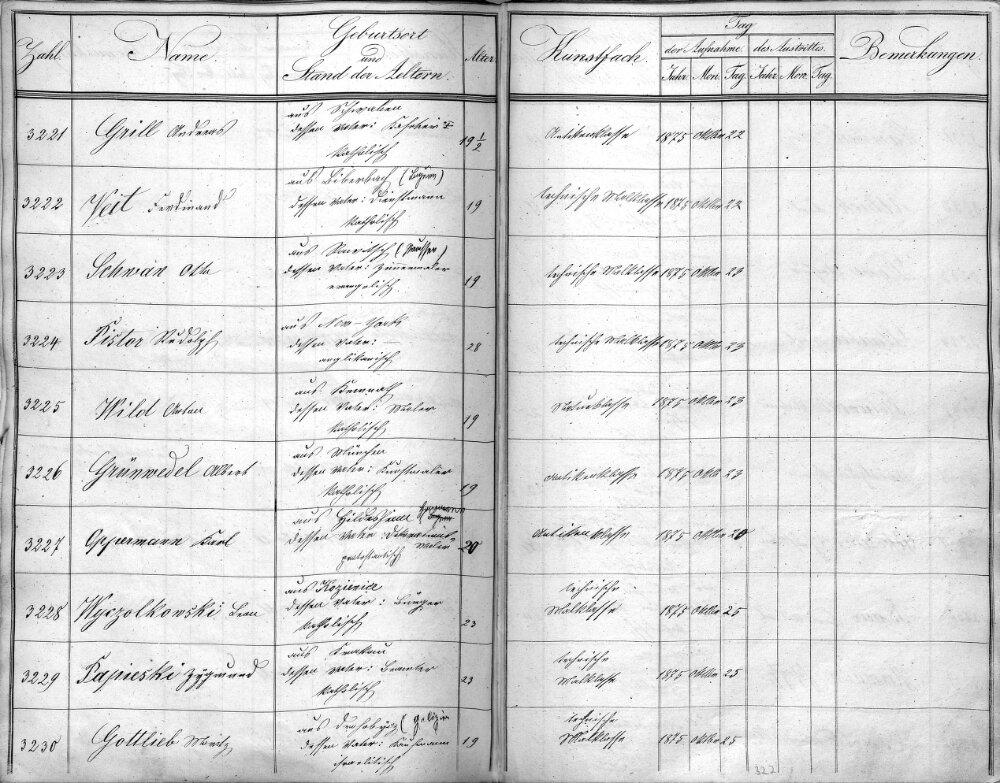 Zahl. Name. Geburtsort und Stand der Aeltern. Alter Kunstfach. Tag der Aufnahme. des Austrittes. Bemerkungen.
Jahr. Mon. Tag. Jahr. Mon. Tag.
3221 Grill Andreas
aus Schwaben
dessen Vater:
katholisch
19 1/2 Antikenklasse 1875 Oktbr 22
3222 Veit Ferdinand
aus Biberbach (Bayern)
dessen Vater: Dienstmann
katholisch
19 technische Malklasse 1875 Oktbr 22
3223 Schwan Otto
aus (Preussen)
dessen Vater: Zimmermaler
evangelisch.
19 technische Malklasse 1875 Oktbr 23
3224 Pistor Rudolph
aus New-York
dessen Vater: —
anglikanisch
28 technische Malklasse 1875 Oktbr 23
3225 Wild Anton
aus Kemnath
dessen Vater: Maler
katholisch
19 Naturklasse 1875 Oktbr 23
3226 Grünwedel Albert
aus München
dessen Vater: Kunstmaler
katholisch
19 Antikenklasse 1875 Oktbr 23
3227 Oppermann Karl
aus Hildesheim
dessen Vater: Dekorations-
Maler
protestantisch
20 Antikenklasse 1875 Oktbr 20
3228 Wyczolkowski Leon
aus Kozienice
dessen Vater: Bürger
katholisch
23 technische
Malklasse 1875 Oktbr 25
3229 Papieski Zygmund
aus Krakau
dessen Vater: Beamter
katholisch
23 technische
Malklasse 1875 Oktbr 25
3230 Gottlieb Moritz
aus Drohobycz (Galizien
dessen Vater: Kaufmann
israelitisch
19 technische
Malklasse 1875 Oktbr 25
322